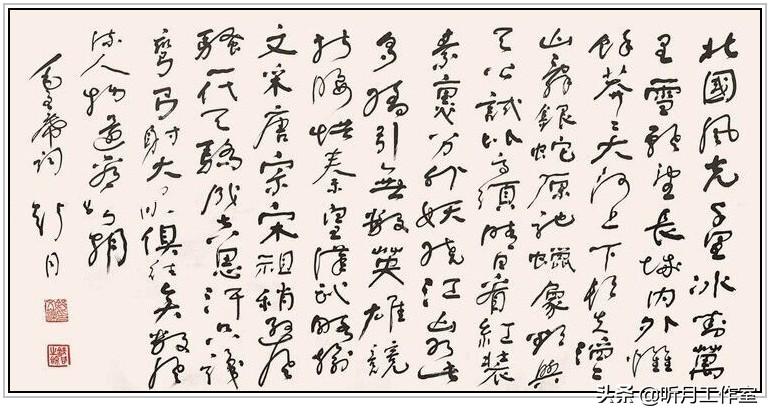 北國風光千里冰封萬
里雪飄望長城内外惟
餘莽々大河上下頓失滔々
山舞銀蛇原馳蠟象欲與
天公試比高須晴日看紅裝
素裹分外妖嬈江山如此
多嬌引無數英雄競
折腰惜秦皇漢武略輸
文采唐宗宋祖稍遜風
騷一代天驕成吉思汗只識
彎弓射大雕俱往矣數風
流人物還看今朝
毛主席詞
头条@听月工作室